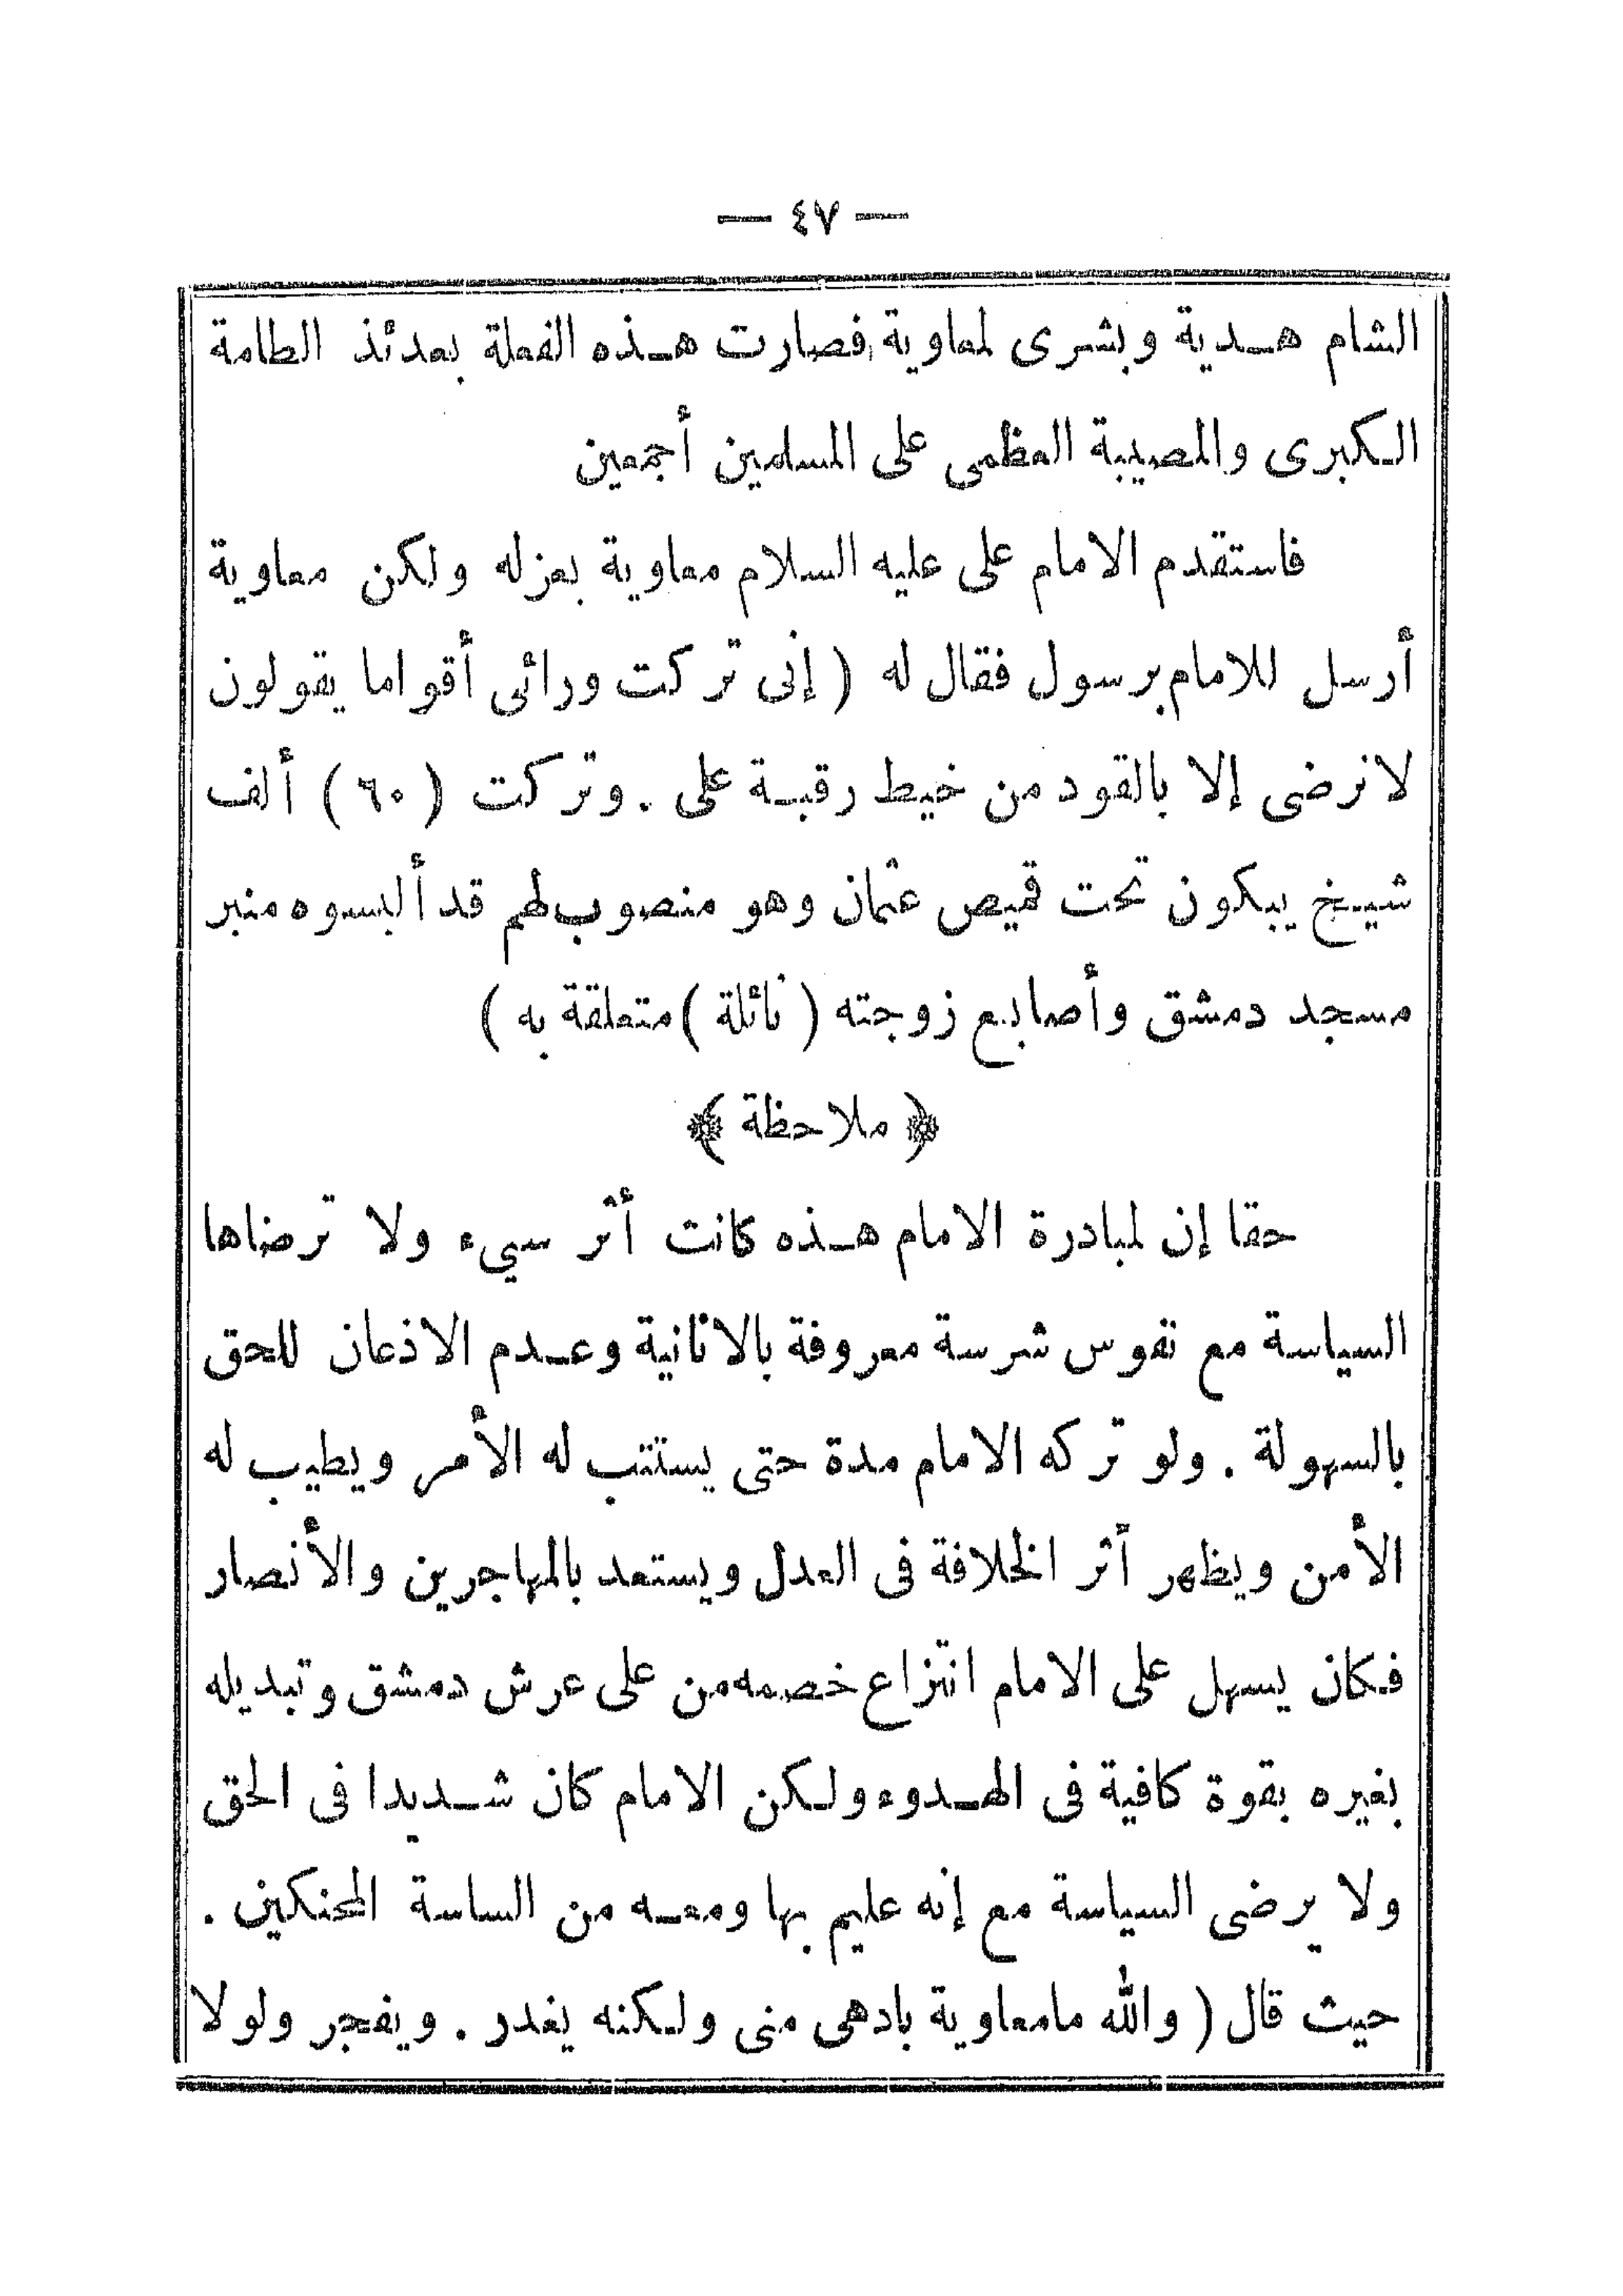 — ٤٧ —
الشام هـدية وبشرى لمعاوية فصارت هـذه الفعلة بعدئذ الطامة
الكبرى والمصيبة العظمى على المسلمين أجمعين
فاستقدم الامام على عليه السلام معاوية بعزله ولكن معاوية
أرسل للامام برسول فقال له ( إنى تركت ورائى أقواما يقولون
لا نرضى إلا بالقود من خيط رقبـة على . وتركت ( ٦٠ ) ألف
شيـخ يبكون تحت قميص عثمان وهو منصوب لهم قد ألبسوه منبر
مسجد دمشق وأصابع زوجته ( نائلة ) متعلقة به )
﴿ ملاحظة ﴾
حقا إن لمبادرة الامام هـذه كانت أثر سيىء ولا ترضاها
السياسة مع نفوس شرسة معروفة بالانانية وعـدم الاذعان للحق
بالسهولة . ولو تركه الامام مدة حتى يستتب له الأمر ويطيب له
الأمن ويظهر أثر الخلافة فى العدل ويستعد بالمهاجرين والأنصار
فكان يسهل على الامام انتزاع خصمه من على عرش دمشق وتبديله
بغيره بقوة كافية فى الهـدوء ولـكن الامام كان شـديدا فى الحق
ولا يرضى السياسة مع إنه عليم بها ومعـه من الساسة المحنكين .
حيث قال ( والله مامعاوية بادهى منى ولـكنه يغدر . ويفجر ولولا